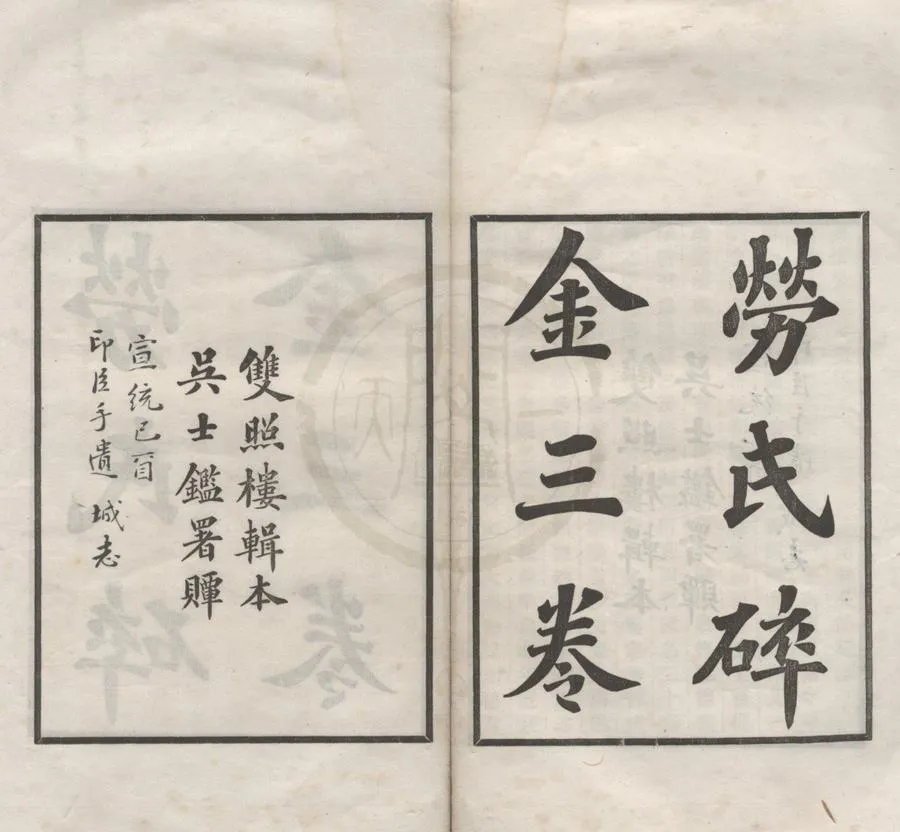 勞氏碎
金三卷
雙照樓輯本
吳士鑑署䞈
宣統己酉
印臣手遺 城志